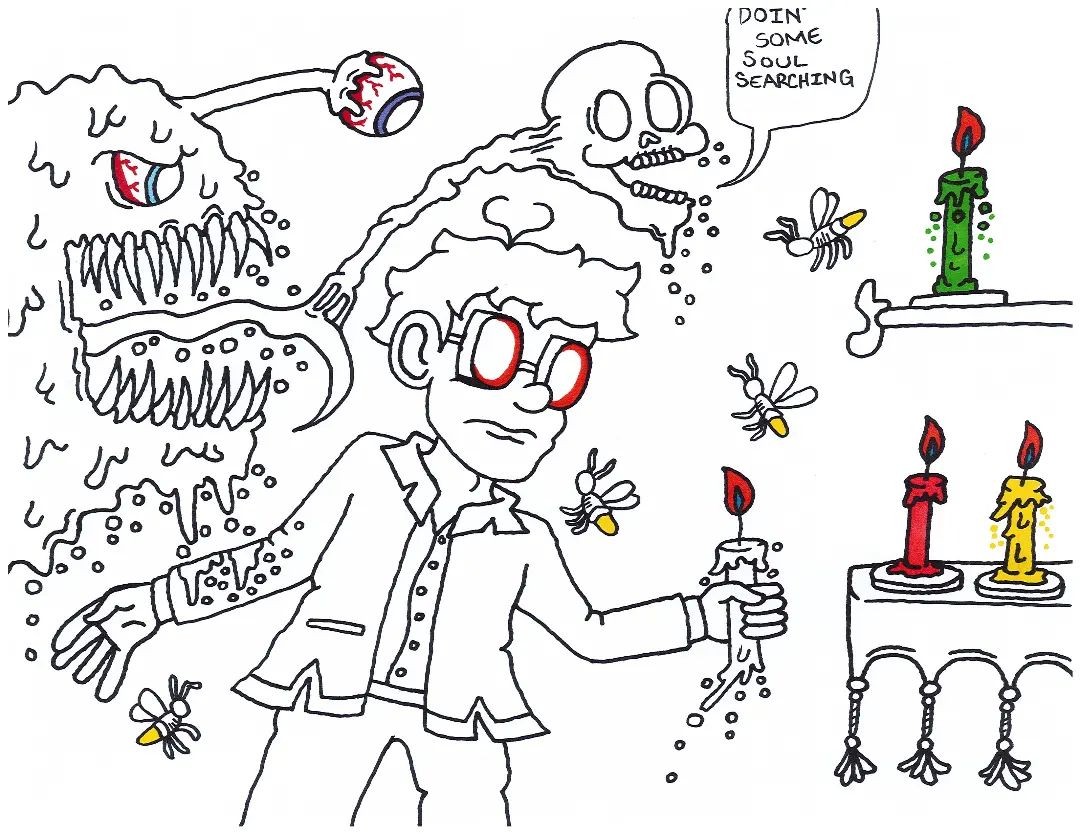 DOIN'
SOME
SOUL
SEARCHING